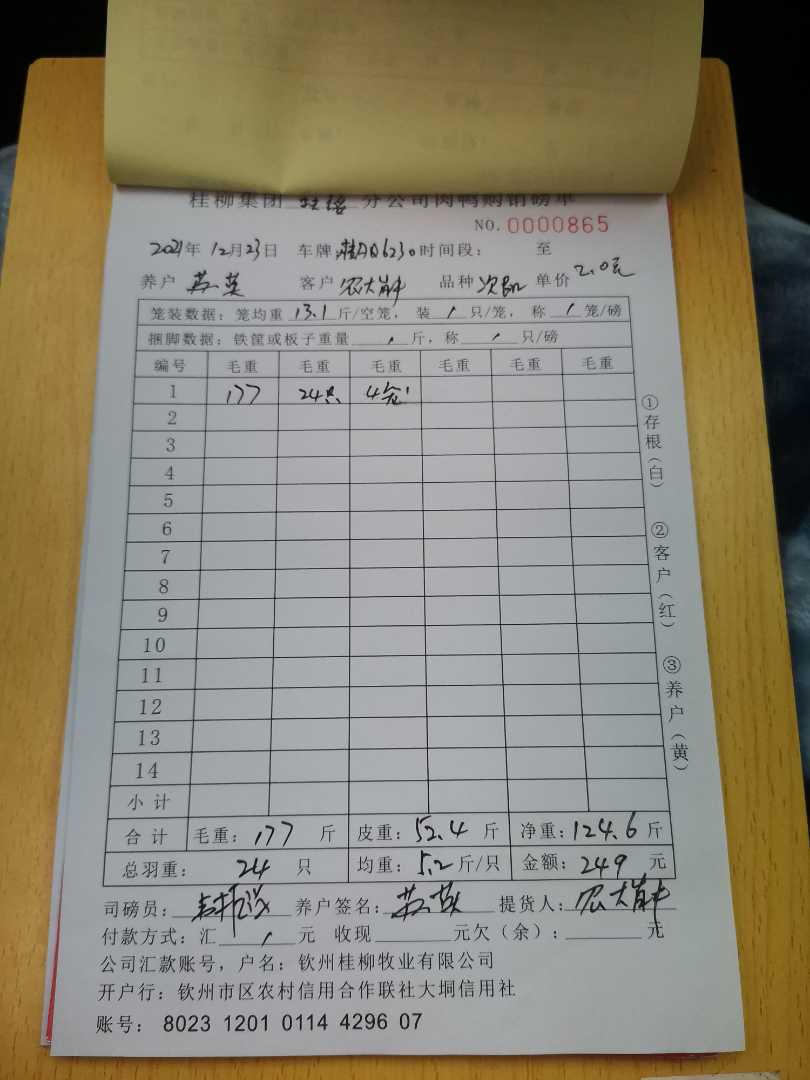 桂柳集团 分公司肉鸭购销磅单
NO. 0000865
2021年 12月23日 车牌 桂AQ6230 时间段: 至
养户 苏英 客户 农大 品种 次 单价 2.0元
笼装数据: 笼均重 13.1 斤/空笼, 装 / 只/笼, 称 / 笼/磅
捆脚数据: 铁筐或板子重量 / 斤, 称 / 只/磅
编号 毛重 毛重 毛重 毛重 毛重 毛重
1 177 24只 4笼
2
3
4
5
6
7
8
9
10
11
12
13
14
小计
合计 毛重: 177 斤 皮重: 52.4 斤 净重: 124.6 斤
总羽重: 24 只 均重: 5.2 斤/只 金额: 249 元
司磅员: 养户签名: 苏英 提货人: 农大
付款方式: 汇 / 元 收现 元欠(余): 元
公司汇款账号, 户名: 钦州桂柳牧业有限公司
开户行: 钦州市区农村信用合作联社大垌信用社
账号: 8023 1201 0114 4296 07
①存根(白)
②客户(红)
③养户(黄)